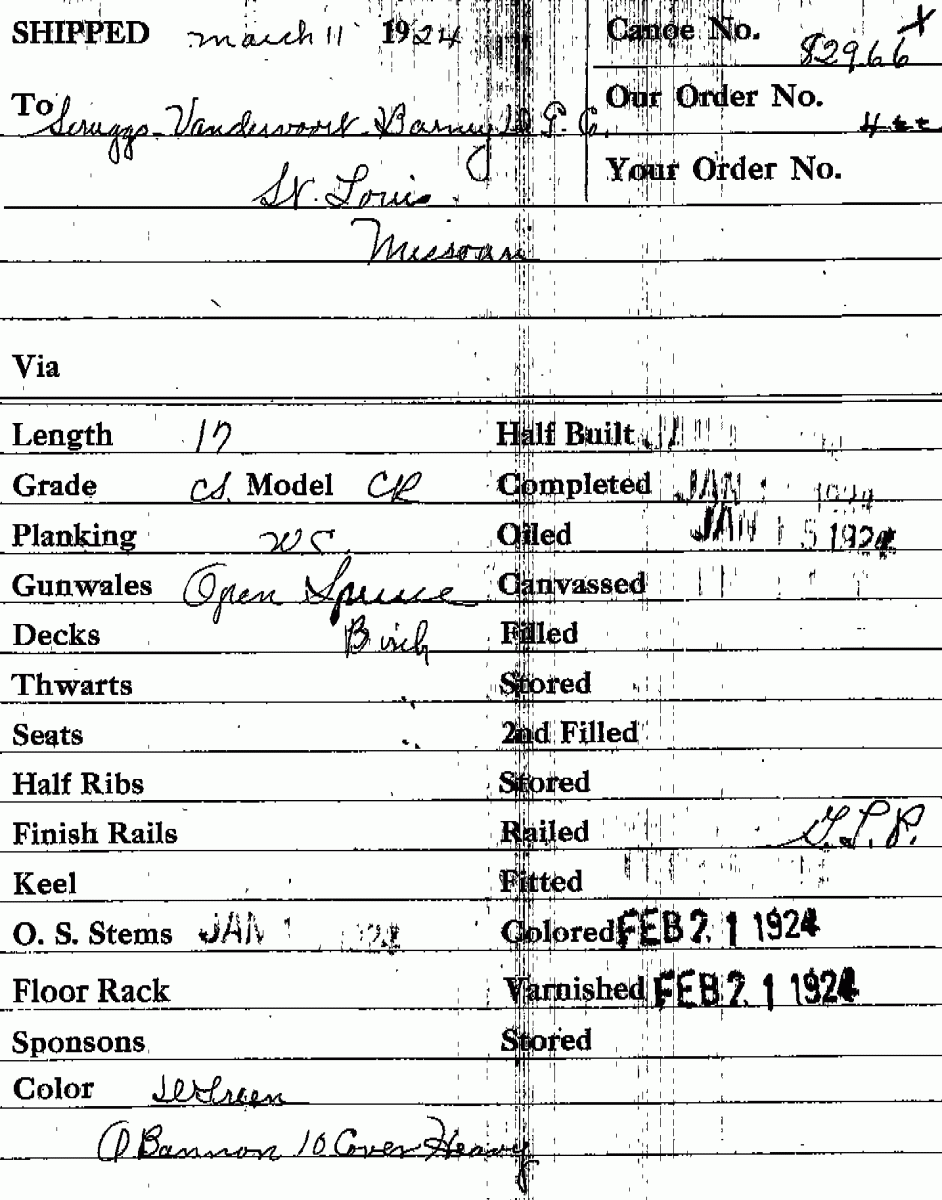 SHIPPED march 11 1924 Canoe No. 82966
To Scruggs-Vandervoort-Barney D. G. Co. Our Order No.
St. Louis Your Order No.
Missouri
Via
Length 17 Half Built
Grade CS. Model CR Completed JAN 1 1924
Planking WC. Oiled JAN 15 1924
Gunwales Open Spruce Canvassed
Decks Birch Filled
Thwarts Stored
Seats 2nd Filled
Half Ribs Stored
Finish Rails Railed G.L.P.
Keel Fitted
O. S. Stems JAN 1 1924 Colored FEB 21 1924
Floor Rack Varnished FEB 21 1924
Sponsons Stored
Color Green
Bannon 10 Cover Heavy